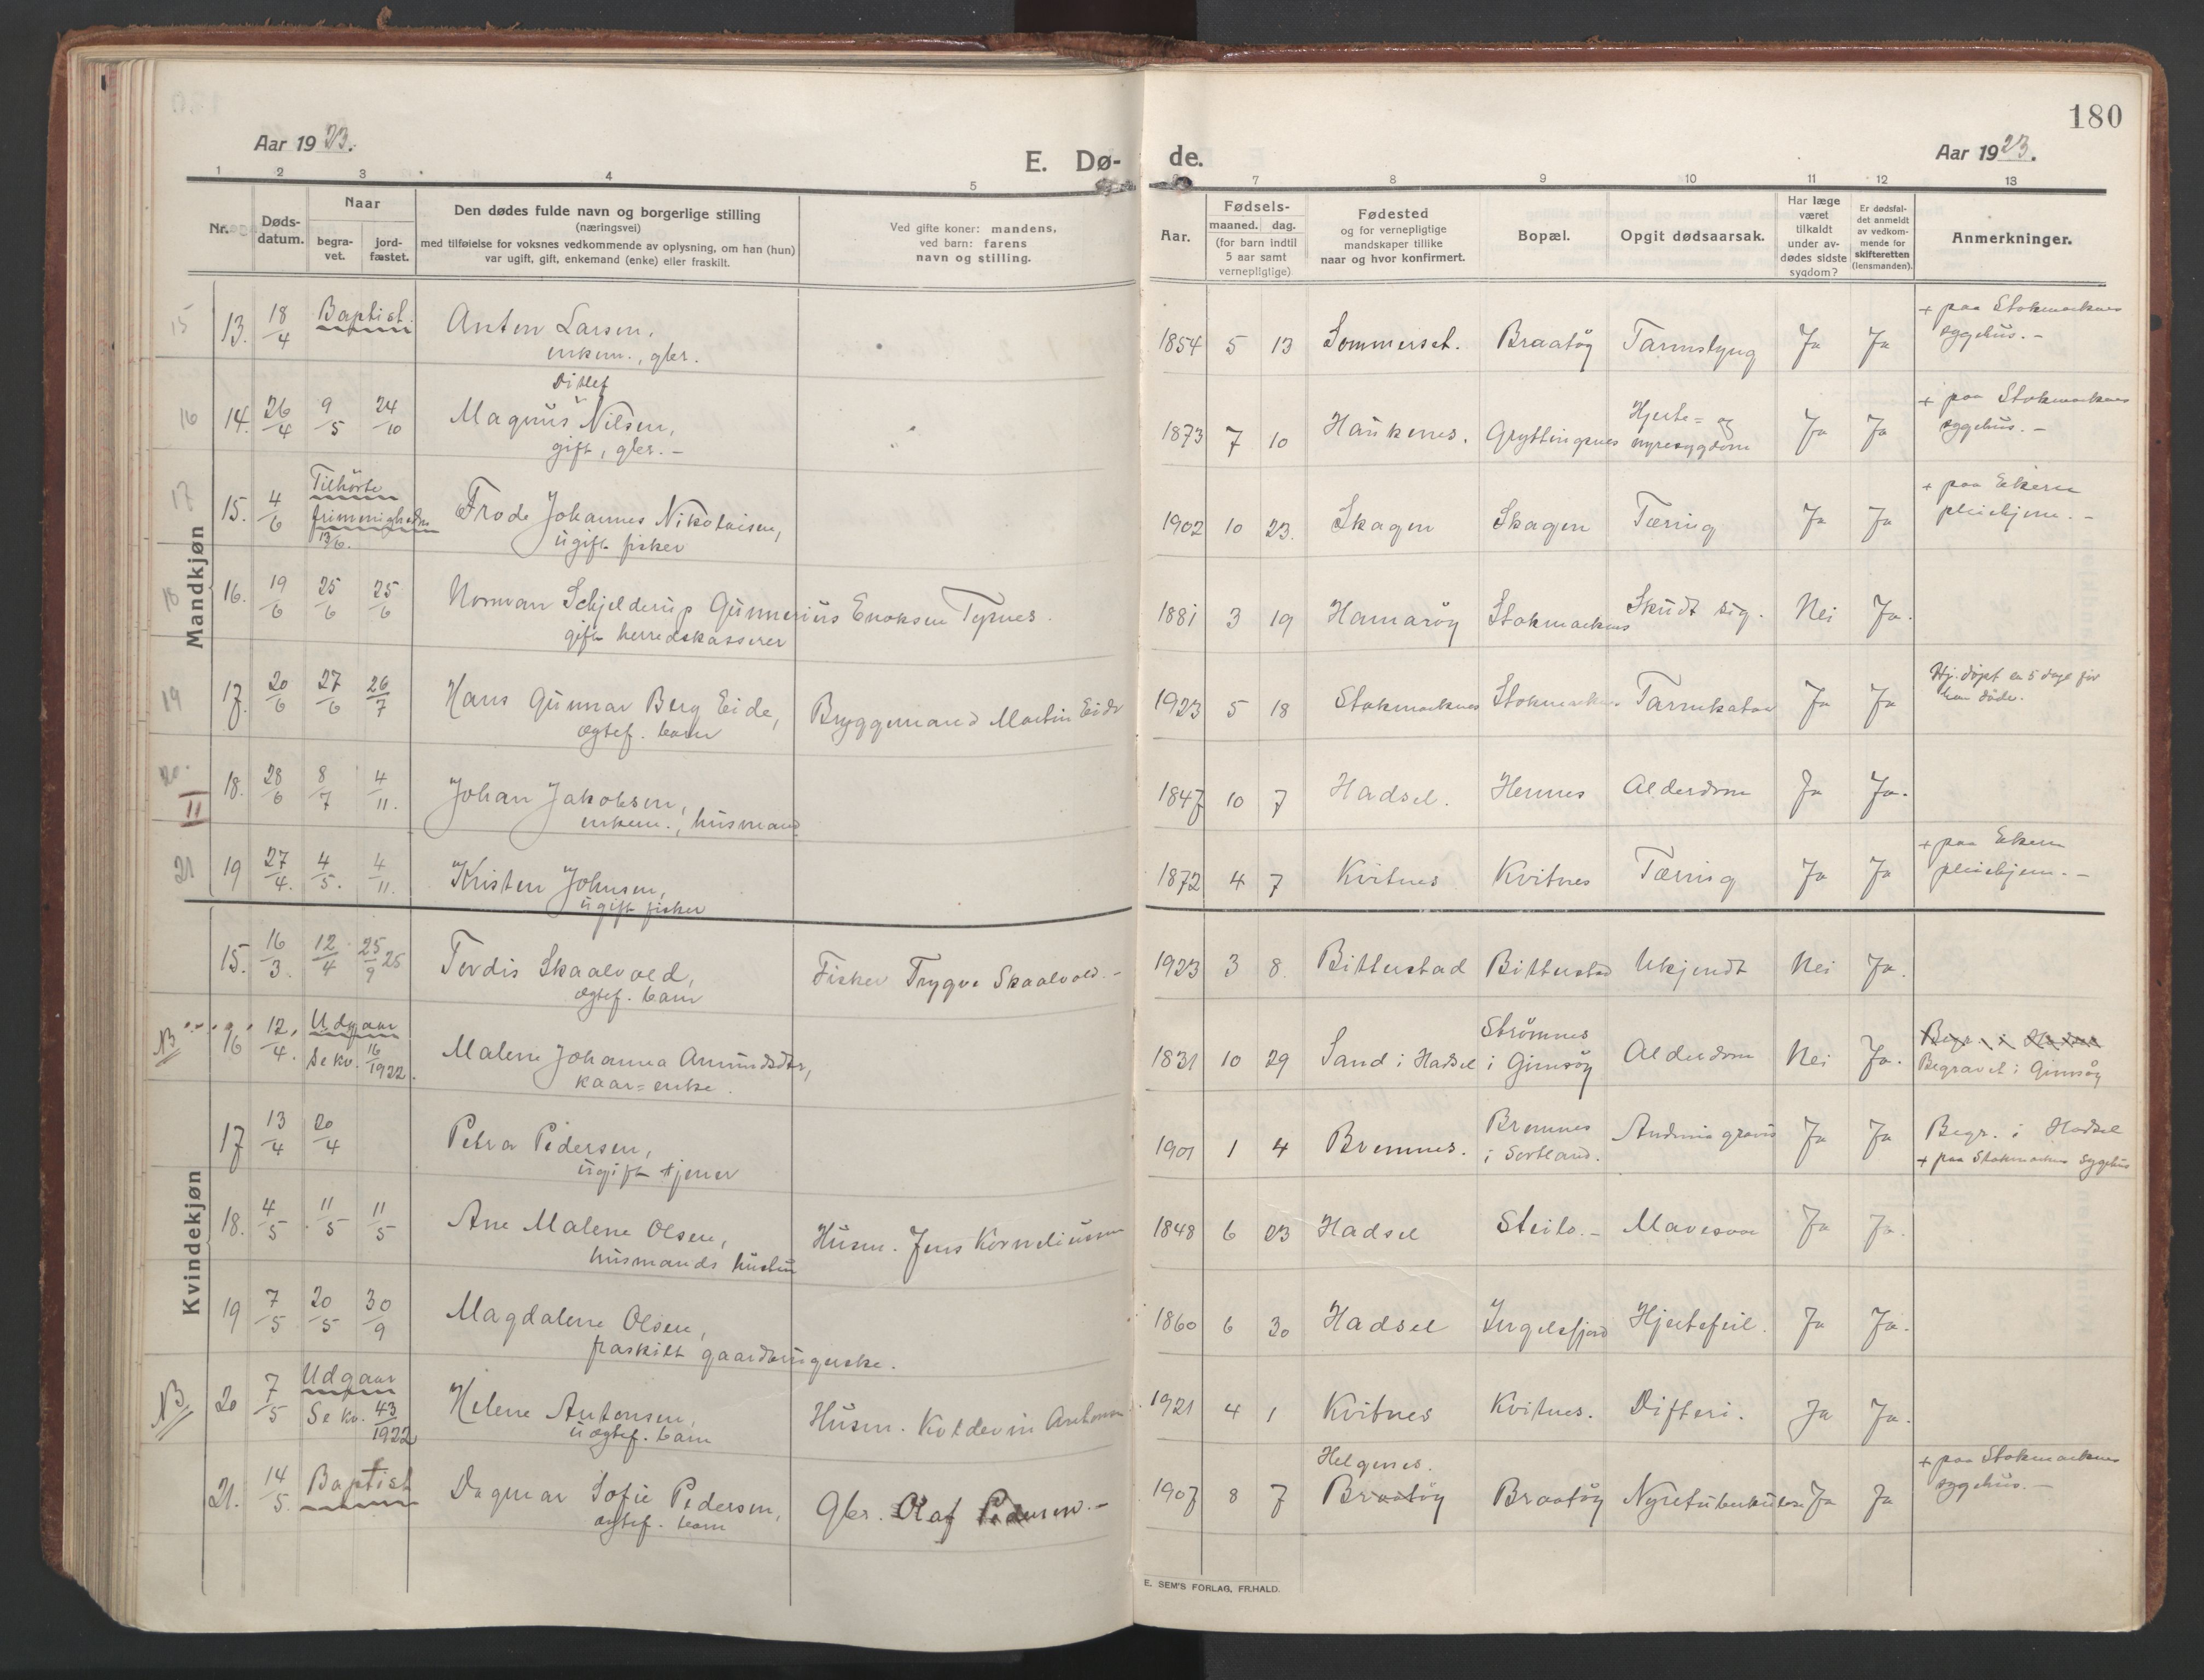 180
Aar 1923.
E. Dø-
de.
Aar 1923.
1 2 3 4 5 7 8 9 10 11 12 13
Nr.
Døds-
datum.
Naar
begra-
vet.
jord-
fæstet.
Den dødes fulde navn og borgerlige stilling
(næringsvei)
med tilføielse for voksnes vedkommende av oplysning, om han (hun)
var ugift, gift, enkemand (enke) eller fraskilt.
Ved gifte koner: mandens,
ved barn: farens
navn og stilling.
Aar.
Fødsels-
maaned. dag.
(for barn indtil
5 aar samt
vernepligtige)
Fødested
og for vernepligtige
mandskaper tillike
naar og hvor konfirmert.
Bopæl.
Opgit dødsaarsak.
Har læge
været
tilkaldt
under av-
dødes sidste
sygdom?
Er dødsfal-
det anmeldt
av vedkom-
mende for
skifteretten
(lensmanden).
Anmerkninger.
Mandkjøn
15 13. 18/4 Baptist. Anton Larsen, 1854 5 13 Sommerset. Braatøy Tarmslyng Ja Ja + paa Stokmarknes
enkem., gbr. sygehus. -
Ditlef
16 14. 26/4 9/5 24/10 Magnus Nilsen, 1873 7 10 Haukenes. Gryttingnes Hjerte= og nyresygdom Ja Ja + paa Stokmarknes
gift, gbr. - sygehus. -
17 15. 4/6 Tilhørte frimenigheden 13/6. Frode Johannes Nikolaisen, 1902 10 23. Skagen Skagen Tæring Ja Ja + paa Eikeren
ugift fisker pleiehjem. -
18 16. 19/6 25/6 25/6 Norman Schjelderup Gunnerius Enoksen Tepnes. 1881 3 19 Hamarøy Stokmarknes Skudt sig. Nei Ja.
gift herredskasserer
19 17. 20/6 27/6 26/7 Hans Gunnar Berg Eide, Bryggemand Martin Eide 1923 5 18 Stokmarknes Stokmarknes Tarmkatar Ja Ja Hj. døpt ca 5 dage før
ægtef. barn han døde.
20. II 18. 28/6 8/7 4/11. Johan Jakobsen, 1847 10 7 Hadsel. Hennes Alderdom Ja Ja.
enkem., husmand
21 19 27/4. 4/5. 4/11. Kristen Johnsen, 1872 4 7 Kvitnes Kvitnes Tæring Ja Ja + paa Ekern
ugift fisker pleiehjem. -
Kvindekjøn
15. 16/3. 12/4 25/9 25 Tordis Skaalvold, Fisker Trygve Skaalvold. - 1923 3 8. Bitterstad Bitterstad Ukjendt Nei Ja.
ægtef. barn
NB 16 12/4. Udgaar Se kv. 16/1922. Malene Johanna Amundsdtr, 1831 10 29 Sand i Hadsel Strømnes i Gimsøy Alderdom Nei Ja. Begravet i Gimsøy
kaar=enke.
17 13/4 20/4 Petra Pedersen, 1901 1 4 Bremnes. Bremnes i Sortland. Anæmia gravis Ja Ja Begr. i Hadsel
ugift tjener + paa Stokmarknes sygehus
18. 4/5 11/5 11/5 Ane Malene Olsen, Husm. Jens Korneliussen 1848 6 23 Hadsel Steilo. - Mavesaar Ja Ja.
husmands hustru
19 7/5 20/5 30/9 Magdalene Olsen, 1860 6 30 Hadsel Ingelsfjord Hjertefeil. Ja Ja.
fraskilt gaardbrugerske.
NB 20 7/5 Udgaar Se kv. 43/1922 Helene Antonsen, Husm. Koldevin Antonsen 1921 4 1 Kvitnes Kvitnes. Difteri. Ja Ja.
uægtef. barn
Helgenes.
21. 14/5. Baptist Dagmar Sofie Pedersen, Gbr. Olaf Pedersen. - 1907 8 7 Braatøy Braatøy Nyretuberkulose Ja Ja + paa Stokmarknes
ægtef. barn sygehus. -
E. SEM'S FORLAG, FR.HALD.